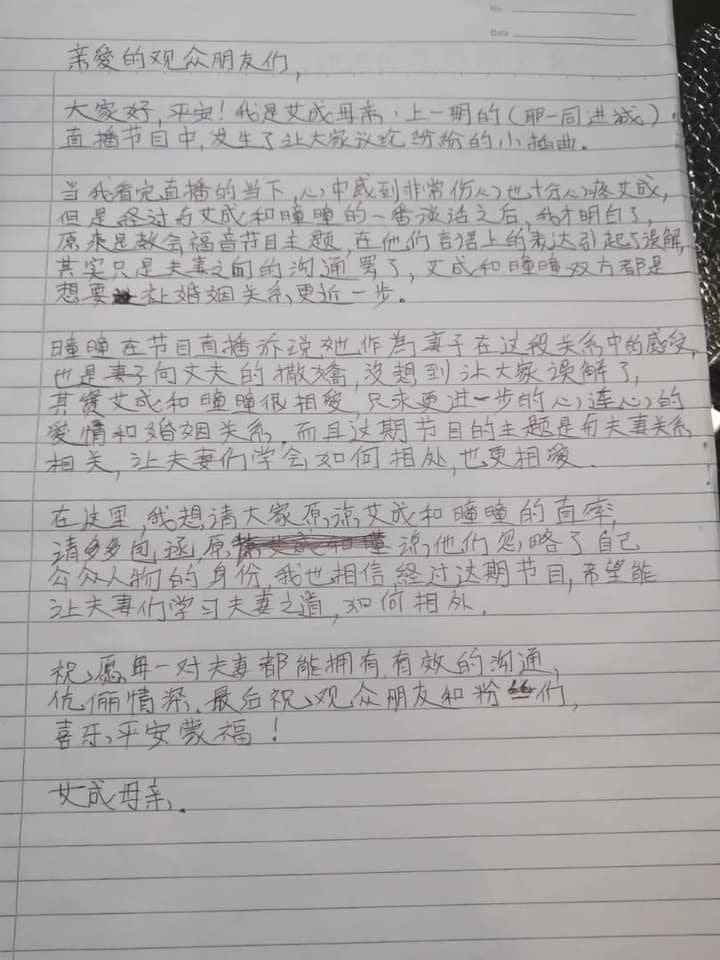 No
Date
亲爱的观众朋友们,
大家好,平安!我是艾成母亲.上一期的(耶一同进城).
直播节目中,发生了让大家议论纷纷的小插曲.
当我看完直播的当下,心中感到非常伤心也十分心疼艾成,
但是经过与艾成和瞳瞳的一番谈话之后,我才明白了,
原来是教会福音节目主题,在他们言语上的表达引起了误解,
其实只是夫妻之间的沟通罢了,艾成和瞳瞳双方都是
想要让婚姻关系更近一步。
瞳瞳在节目直播诉说她作為妻子在这段关系中的感受,
也是妻子向丈夫的撒嬌,没想到让大家误解了,
其實艾成和瞳瞳很相爱,只求更进一步的心连心的
爱情和婚姻关系,而且这期节目的主题是与夫妻关系
相关,让夫妻们学会如何相处,也更相爱.
在这里,我想请大家原谅艾成和瞳瞳的直率,
请多多包拯,原谅他们忽略了自己
公众人物的身份,我也相信经过这期节目,希望能
让夫妻们学习夫妻之道,如何相处.
祝愿每一对夫妻都能拥有有效的沟通,
伉俪情深,最后祝观众朋友和粉丝们,
喜乐,平安蒙福!
艾成母亲.